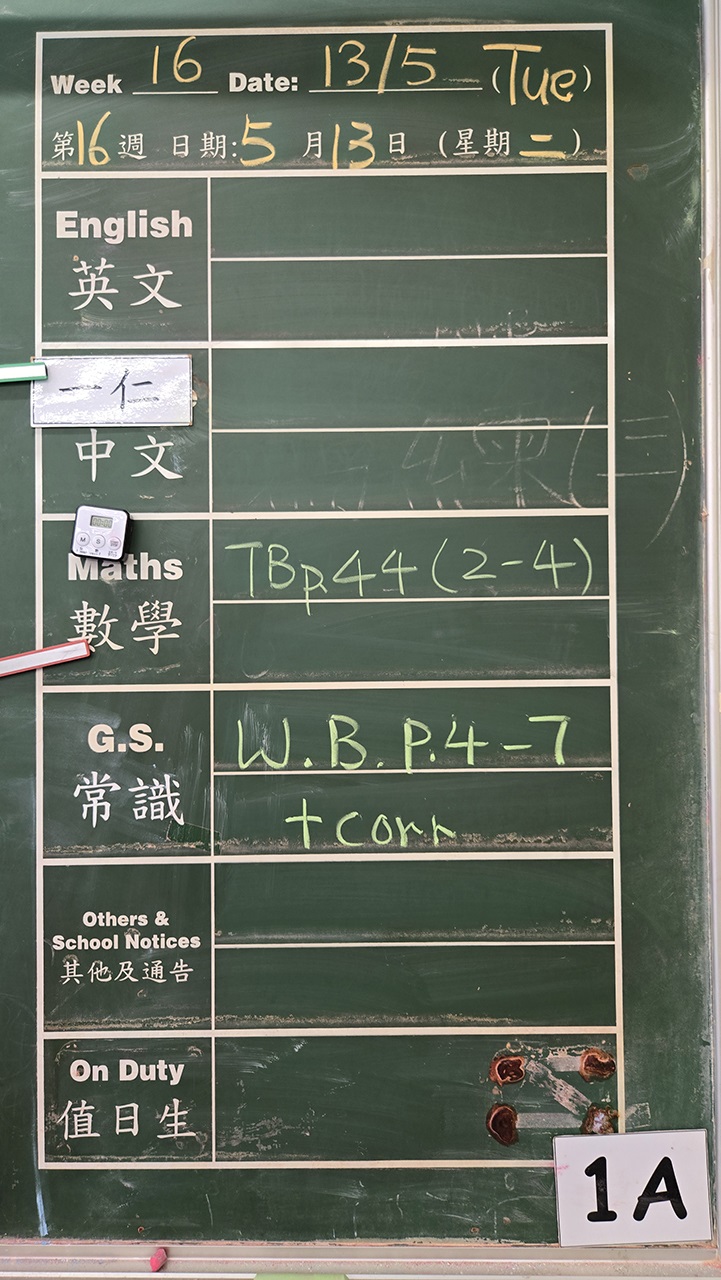 Week 16 Date: 13/5 (Tue)
第16週 日期:5月13日 (星期二)
English
英文
一仁
中文
00:00
M S
Maths TBp.44(2-4)
數學
G.S. W.B. P.4-7
常識 + corr
Others &
School Notices
其他及通告
On Duty
值日生
1A